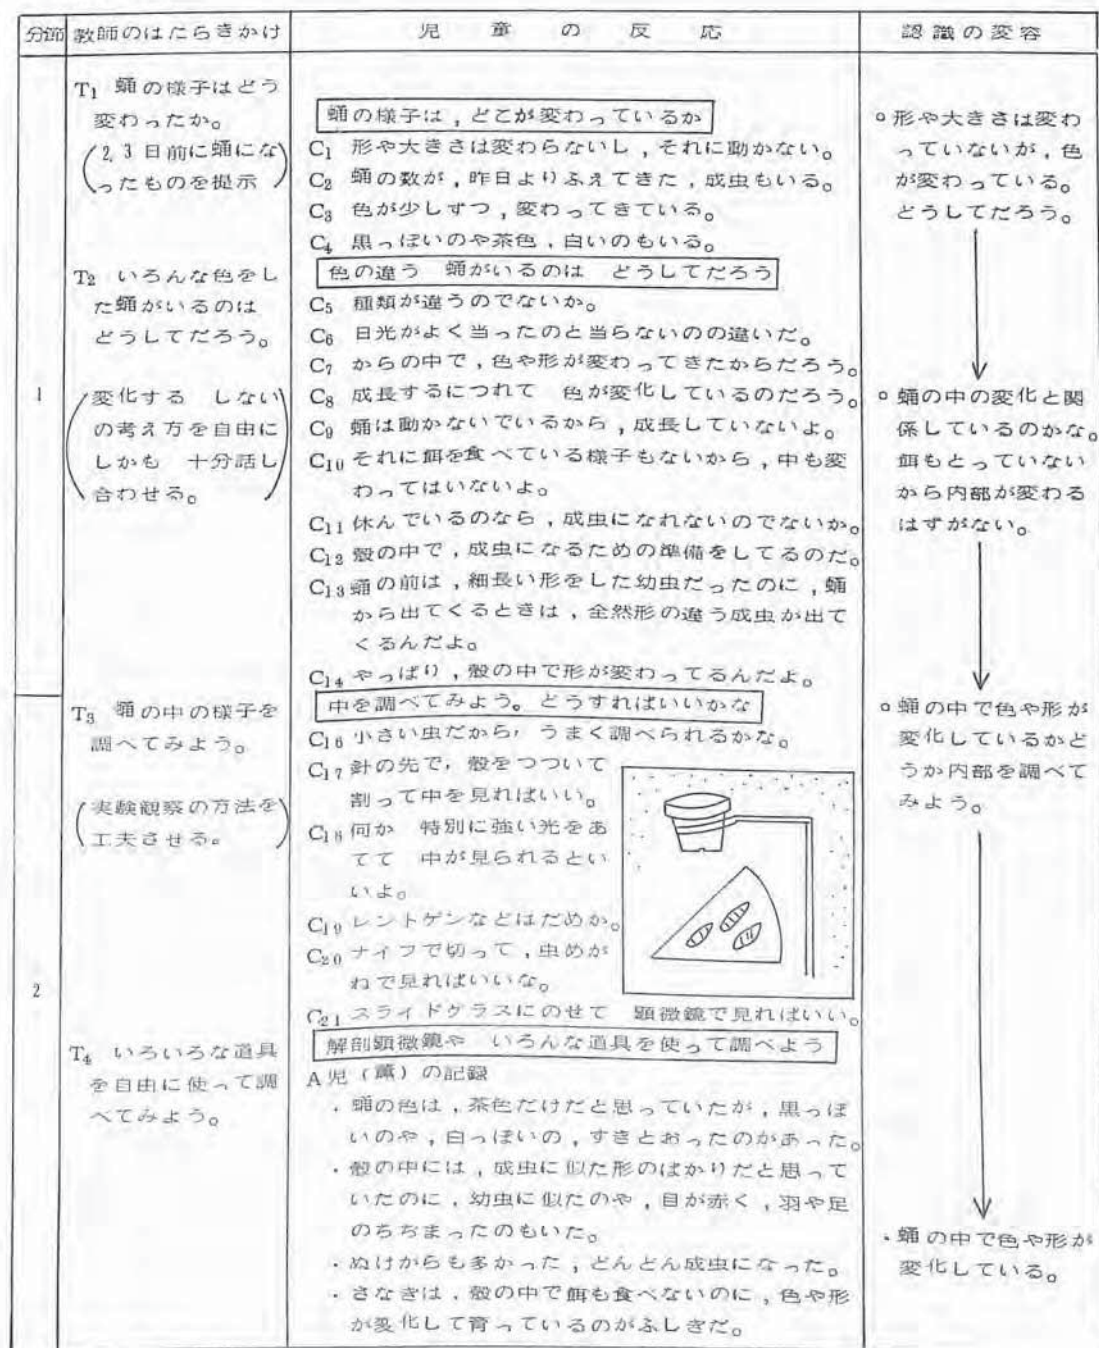 分節 教師のはたらきかけ 児童の反応 認識の変容
1
T1 蛹の様子はどう
変わったか。
(2,3日前に蛹にな
ったものを提示)
T2 いろんな色をし
た蛹がいるのは
どうしてだろう。
(変化する しない
の考え方を自由に
しかも 十分話し
合わせる。)
蛹の様子は,どこが変わっているか
C1 形や大きさは変わらないし,それに動かない。
C2 蛹の数が,昨日よりふえてきた,成虫もいる。
C3 色が少しずつ,変わってきている。
C4 黒っぽいのや茶色,白いのもいる。
色の違う 蛹がいるのは どうしてだろう
C5 種類が違うのでないか。
C6 日光がよく当ったのと当らないのの違いだ。
C7 からの中で,色や形が変わってきたからだろう。
C8 成長するにつれて 色が変化しているのだろう。
C9 蛹は動かないでいるから,成長していないよ。
C10 それに餌を食べている様子もないから,中も変
わってはいないよ。
C11 休んでいるのなら,成虫になれないのでないか。
C12 殻の中で,成虫になるための準備をしてるのだ。
C13 蛹の前は,細長い形をした幼虫だったのに,蛹
から出てくるときは,全然形の違う成虫が出て
くるんだよ。
C14 やっぱり,殻の中で形が変わってるんだよ。
○形や大きさは変わ
っていないが,色
が変わっている。
どうしてだろう。
○蛹の中の変化と関
係しているのかな。
餌もとっていない
から内部が変わる
はずがない。
2
T3 蛹の中の様子を
調べてみよう。
(実験観察の方法を
工夫させる。)
T4 いろいろな道具
を自由に使って調
べてみよう。
中を調べてみよう。どうすればいいかな
C16 小さい虫だから,うまく調べられるかな。
C17 針の先で,殻をつついて
割って中を見ればいい。
C18 何か 特別に強い光をあ
てて 中が見られるとい
いよ。
C19 レントゲンなどはだめか。
C20 ナイフで切って,虫めが
ねで見ればいいな。
C21 スライドグラスにのせて 顕微鏡で見ればいい。
解剖顕微鏡や いろんな道具を使って調べよう
A児(薫)の記録
・蛹の色は,茶色だけだと思っていたが,黒っぽ
いのや,白っぽいの,すきとおったのがあった。
・殻の中には,成虫に似た形のばかりだと思って
いたのに,幼虫に似たのや,目が赤く,羽や足
のちぢまったのもいた。
・ぬけがらも多かった,どんどん成虫になった。
・さなぎは,殻の中で餌も食べないのに,色や形
が変化して育っているのがふしぎだ。
○蛹の中で色や形が
変化しているかど
うか内部を調べて
みよう。
・蛹の中で色や形が
変化している。